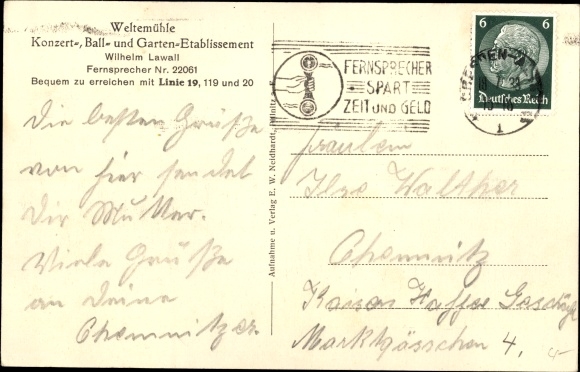 Weltemühle
Konzert-, Ball- und Garten-Etablissement
Wilhelm Lawall
Fernsprecher Nr. 22061
Bequem zu erreichen mit Linie 19, 119 und 20
Die besten Grüße
von hier sendet
Dir Mutter.
Viele Grüße
an Deine
Chemnitzer.
Aufnahme u. Verlag E. W. Neidhardt,
FERNSPRECHER
SPART
ZEIT UND GELD
6 6
Deutsches Reich
1
Fräulein
Ilse Walther
Chemnitz
Kaisers Kaffee Geschäft
Marktgässchen 4.